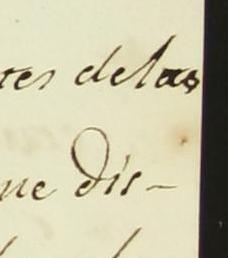 tes de las
ue dis-